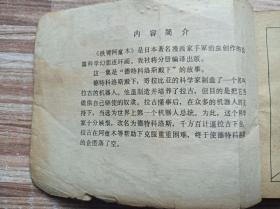 内容简介
《铁臂阿童木》是日本著名漫画家手冢治虫创作的长
篇科学幻想连环画，我社将分册编译出版。
这一集是“德特科洛斯殿下”的故事。
德特科洛斯殿下，努拉比亚的科学家制造了一个机器人
拉古的机器人。他虽制造并培养了拉古，但目的是把它
做供自己驱使的奴隶。拉古懂事后，在众多的机器人的
下，当选为世界上第一个机器人总统。为此，这个殿
家十分嫉恨，改名为德特科洛斯，千方百计逼拉古下台
拉古在阿童木等帮助下克服重重困难，终于使德特科洛
的企图落了空。